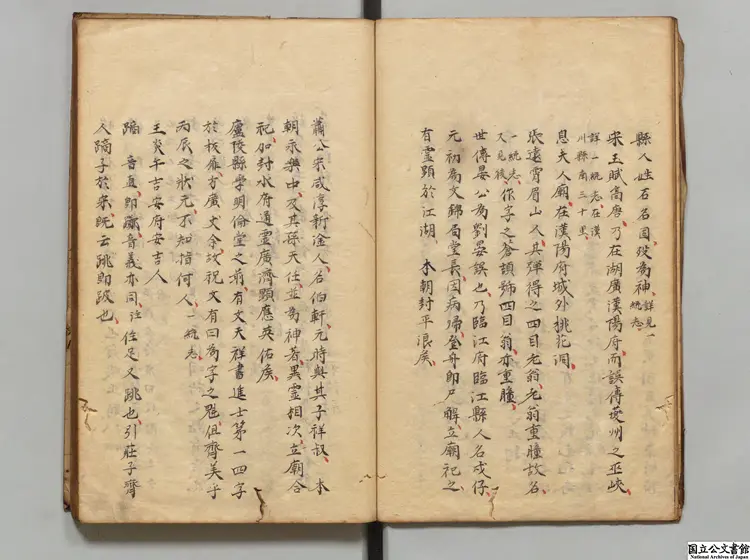 縣人姓石名固歿為神詳見一統志
宋玉賦高唐乃在湖廣漢陽府而誤傳夔州之巫峽
詳一統志在漢川縣南三十里
息夫人廟在漢陽府城外桃花洞
張遠霄眉山人其彈得之四目老翁老翁重瞳故名
一統志又見後作字之答頭號四目翁亦重瞳
世傳晏公為劉晏誤也乃臨江府臨江縣人名戍仔
元初為文錦局堂長因病歸登舟即尸解立廟祀之
有靈顯於江湖 本朝封平浪侯
蕭公宋咸淳新淦人名伯軒元時與其子祥叔 本
朝永樂中及其孫天任並為神著異靈相次立廟合
祀加封水府通靈廣濟顯應英佑侯
廬陵縣學明倫堂之前有文天祥書進士第一四字
於板扉方廣丈余故祝文有曰為字之魁俱齊美于
丙辰之狀元不知指何人一統志
王炎午吉安府安吉人
蹢 音直即躑音義亦同注住足又跳也引莊子齊
人蹢子於宋既云跳即跛也
国立公文書館
National Archives of Japan